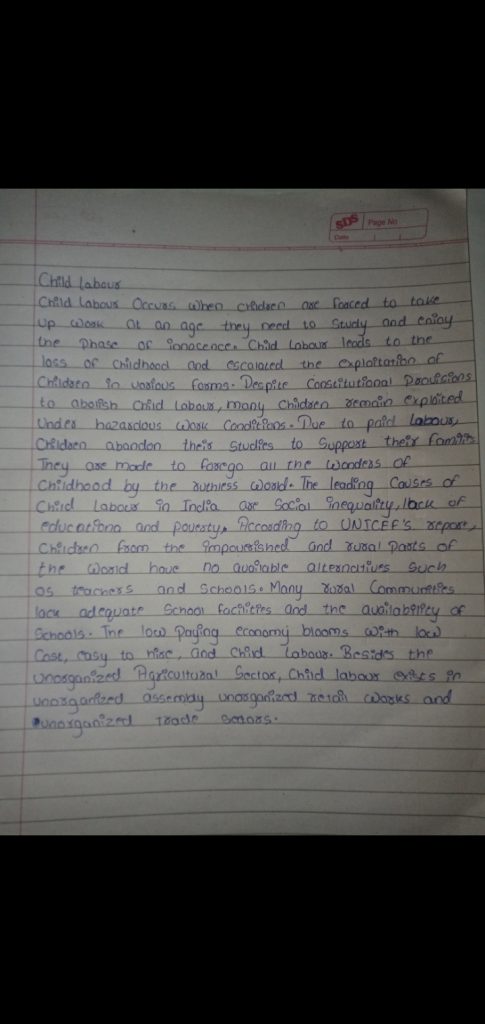 SDS
Page No
Date
Child labour
Child labour Occurs when children are forced to take
up work at an age they need to study and enjoy
the phase of innocence. Child labour leads to the
loss of childhood and escalated the exploitation of
Children in various forms. Despite Constitutional Provisions
to abolish Child labour, many children remain exploited
Under hazardous work Conditions. Due to paid labour,
Children abandon their studies to support their families
They are made to forego all the wonders of
Childhood by the ruthless world. The leading Causes of
Child Labour in India are Social inequality, lack of
educationa and poverty. According to UNICEF'S report,
Children from the impoverished and rural Parts of
the World have no available alternatives Such
as teachers and schools. Many rural Communities
lack adequate School facilities and the availability of
Schools. The low Paying economy blooms with low
Cost, easy to hire, and Child labour. Besides the
unorganized Agricultural Sector, Child labour exists in
unorganized assembly unorganized retail works and
unorganized trade sectors.